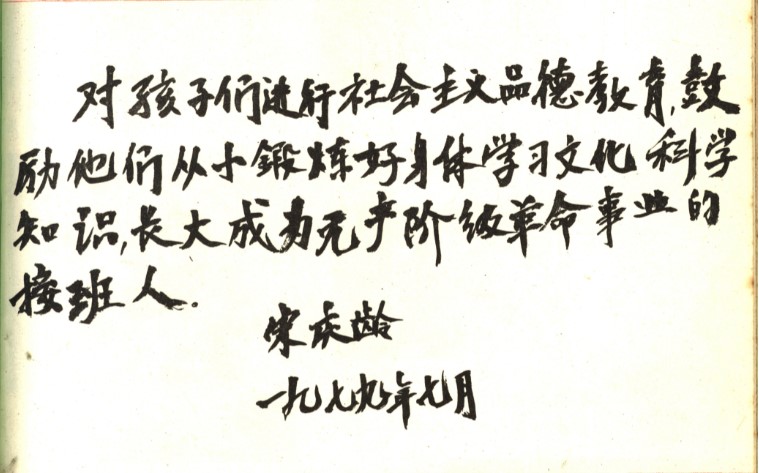 对孩子们进行社会主义品德教育,鼓
励他们从小鍛炼好身体学习文化科学
知识,长大成为无产阶级革命事业的
接班人.
宋庆龄
一九七九年七月